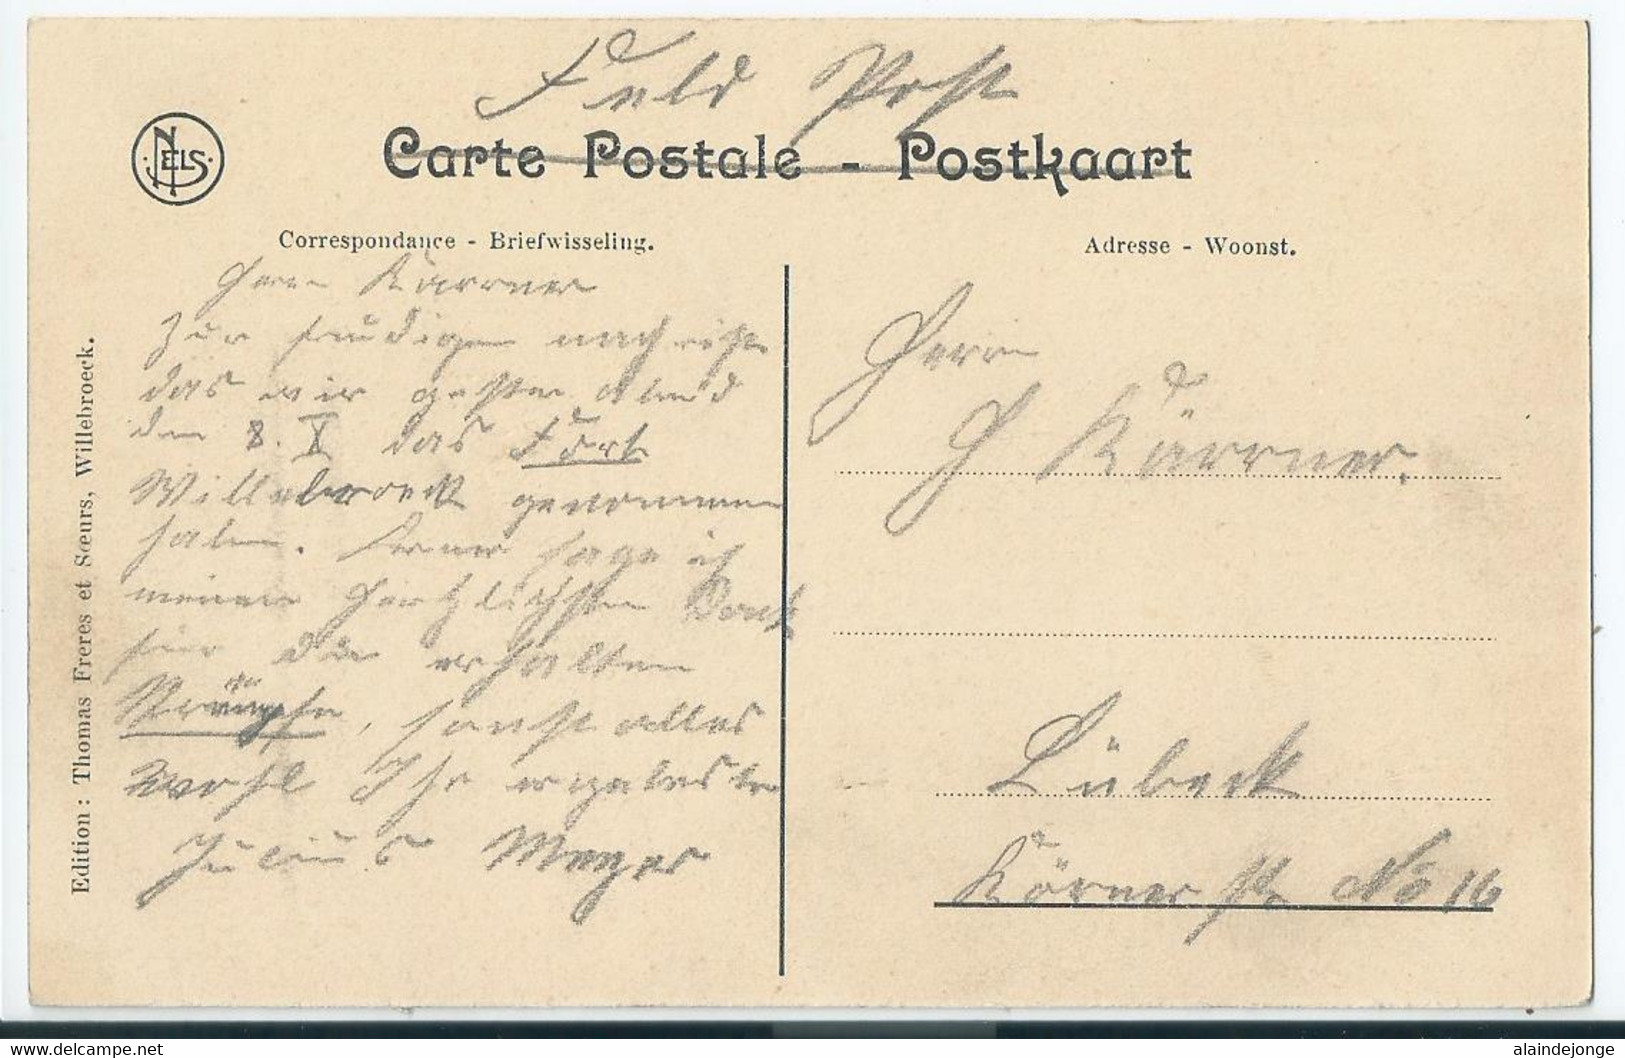 Feld Post
NELS
Carte Postale - Postkaart
Correspondance - Briefwisseling.
Adresse - Woonst.
Edition : Thomas Frères et Sœurs, Willebroeck.
Herrn Kärrner
Zur freudigen nachricht
das wir gestern abend
den 8. X das Fort
Willebroeck genommen
haben. Ferner sage ich
meinen hertzlichsten Dank
für die erhalten
Strümpfe, sonst alles
wohl Ihr ergebenster
Julius Meyer
Herrn
H Kärrner.
Lübeck
Körner st No 16
alaindejonge
www.delcampe.net